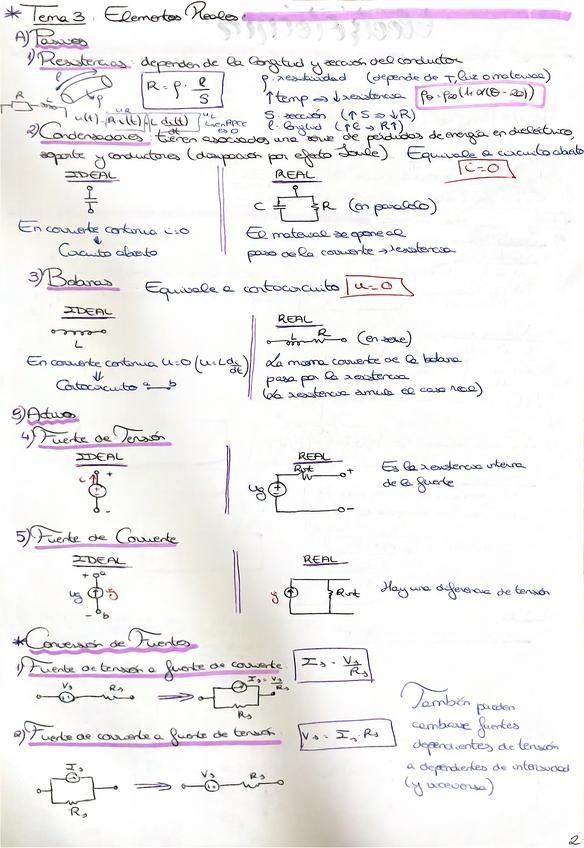 * Tema 3: Elementos Reales:
A) Pasivos
1) Resistencias: dependen de la longitud y sección del conductor
R = ρ · l/S
ρ: resistividad (depende de T, luz o materiales)
↑ temp ⇒ ↓ resistencia
S: sección (↑S ⇒ ↓R)
l: longitud (↑l ⇒ R↑)
2) Condensadores: tienen asociados una serie de pérdidas de energía en dieléctrico,
soporte y conductores (disipación por efecto Joule). Equivale a circuito abierto
i=0
IDEAL
REAL
C
R
(en paralelo)
En corriente continua i=0
↓
Circuito abierto
El material se opone al
paso de la corriente → resistencia
3) Bobinas
Equivale a cortocircuito
u=0
IDEAL
REAL
L
L
R
(en serie)
En corriente continua u=0 (u=L di/dt)
⇓
Cortocircuito a b
La misma corriente de la bobina
pasa por la resistencia
(La resistencia simula el caso real)
B) Activos
4) Fuente de Tensión
IDEAL
REAL
i
+
-
ug
Rint
+
-
Es la resistencia interna
de la fuente
5) Fuente de Corriente
IDEAL
REAL
+ a
ug
ig
- b
Rint
Hay una diferencia de tensión
* Conversión de Fuentes
1) Fuente de tensión a fuente de corriente:
Is = Vs/Rs
Vs
Rs
Is = Vs/Rs
Rs
2) Fuente de corriente a fuente de tensión:
Vs = Is · Rs
Is
Rs
Vs
Rs
También pueden
cambiarse fuentes
dependientes de tensión
a dependientes de intensidad
(y viceversa)
2